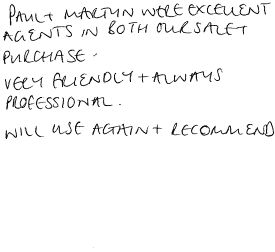 PAUL + MARTYN WERE EXCELLENT
AGENTS IN BOTH OUR SALE +
PURCHASE.
VERY FRIENDLY + ALWAYS
PROFESSIONAL.
WILL USE AGAIN + RECOMMEND